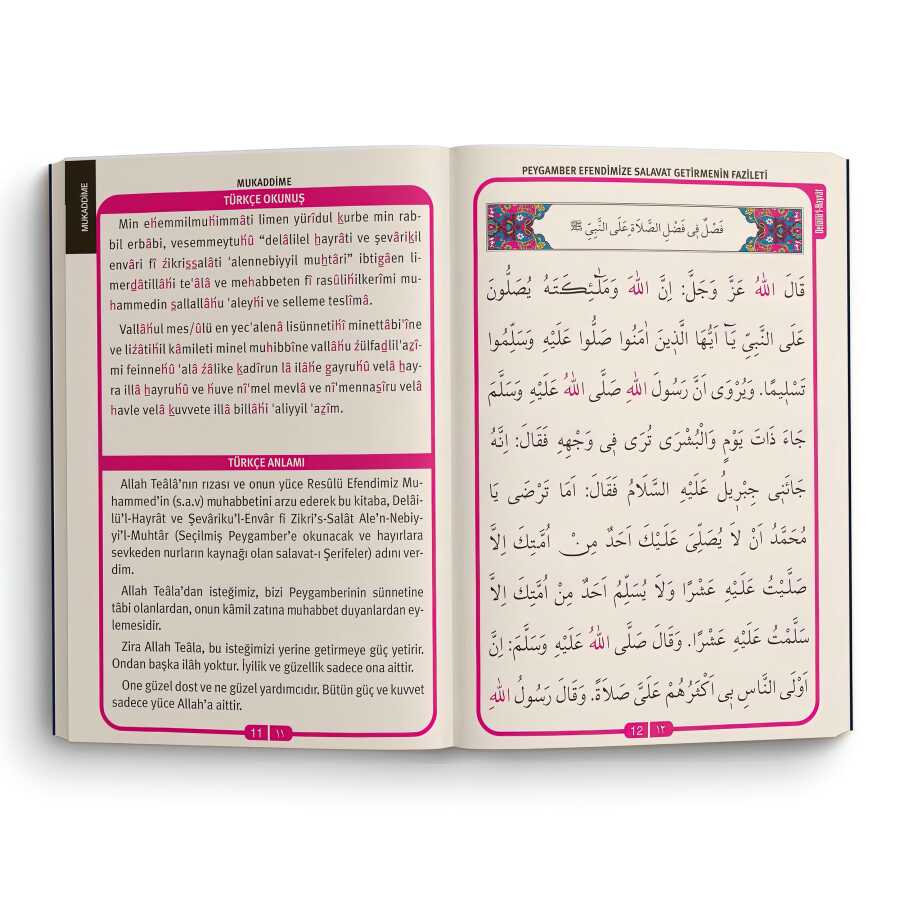 MUKADDİME
MUKADDİME
TÜRKÇE OKUNUŞ
Min eḣemmilmuḣimmâti limen yürîdul ḵurbe min rab-
bil erbâbi, vesemmeytuḣû “delâlilel ẖayrâti ve şevâriḵil
envâri fî źikriṣṣalâti 'alennebiyyil muẖtâri” ibtiġâen li-
merḍâtillâḣi te'âlâ ve meḥabbeten fî rasûliḣilkerîmi mu-
ḥammedin ṣallallâḣu 'aleyḣi ve selleme teslîmâ.
Vallâḣul mes/ûlü en yec'alenâ lisünnetiḣî minettâbi'îne
ve liźâtiḣil kâmileti minel muḥibbîne vallâḣu źülfaḍlil'aẓî-
mi feinneḣû 'alâ źâlike ḵadîrun lâ ilâḣe ġayruḣû velâ ẖay-
ra illâ ẖayruḣû ve ḣuve nî'mel mevlâ ve nî'mennaṣîru velâ
ḥavle velâ ḵuvvete illâ billâḣi 'aliyyil 'aẓîm.
TÜRKÇE ANLAMI
Allah Teâlâ’nın rızası ve onun yüce Resûlü Efendimiz Mu-
hammed’in (s.a.v) muhabbetini arzu ederek bu kitaba, Delâi-
lü’l-Hayrât ve Şevâriku’l-Envâr fi Zikri’s-Salât Ale’n-Nebiy-
yi’l-Muhtâr (Seçilmiş Peygamber’e okunacak ve hayırlara
sevkeden nurların kaynağı olan salavat-ı Şerifeler) adını ver-
dim.
Allah Teâla’dan isteğimiz, bizi Peygamberinin sünnetine
tâbi olanlardan, onun kâmil zatına muhabbet duyanlardan ey-
lemesidir.
Zira Allah Teâla, bu isteğimizi yerine getirmeye güç yetirir.
Ondan başka ilâh yoktur. İyilik ve güzellik sadece ona aittir.
One güzel dost ve ne güzel yardımcıdır. Bütün güç ve kuvvet
sadece yüce Allah’a aittir.
11 ١١
PEYGAMBER EFENDİMİZE SALAVAT GETİRMENİN FAZİLETİ
Delâilü'l-Hayrât
فَصْلٌ فِى فَضْلِ الصَّلَاةِ عَلَى النَّبِيِّ ﷺ
قَالَ اللهُ عَزَّ وَجَلَّ: اِنَّ اللهَ وَمَلٰٓئِكَتَهُ يُصَلُّونَ
عَلَى النَّبِيِّ يَآ اَيُّهَا الَّذِينَ اٰمَنُوا صَلُّوا عَلَيْهِ وَسَلِّمُوا
تَسْلِيمًا. وَيُرْوَى اَنَّ رَسُولَ اللهِ صَلَّى اللهُ عَلَيْهِ وَسَلَّمَ
جَاءَ ذَاتَ يَوْمٍ وَالْبُشْرَى تُرَى فِى وَجْهِهِ فَقَالَ: اِنَّهُ
جَائَنِى جِبْرِيلُ عَلَيْهِ السَّلَامُ فَقَالَ: اَمَا تَرْضَى يَا
مُحَمَّدُ اَنْ لَا يُصَلِّىَ عَلَيْكَ اَحَدٌ مِنْ اُمَّتِكَ اِلَّا
صَلَّيْتُ عَلَيْهِ عَشْرًا وَلَا يُسَلِّمُ اَحَدٌ مِنْ اُمَّتِكَ اِلَّا
سَلَّمْتُ عَلَيْهِ عَشْرًا. وَقَالَ صَلَّى اللهُ عَلَيْهِ وَسَلَّمَ: اِنَّ
اَوْلَى النَّاسِ بِى اَكْثَرُهُمْ عَلَيَّ صَلَاةً. وَقَالَ رَسُولُ اللهِ
12 ١٢